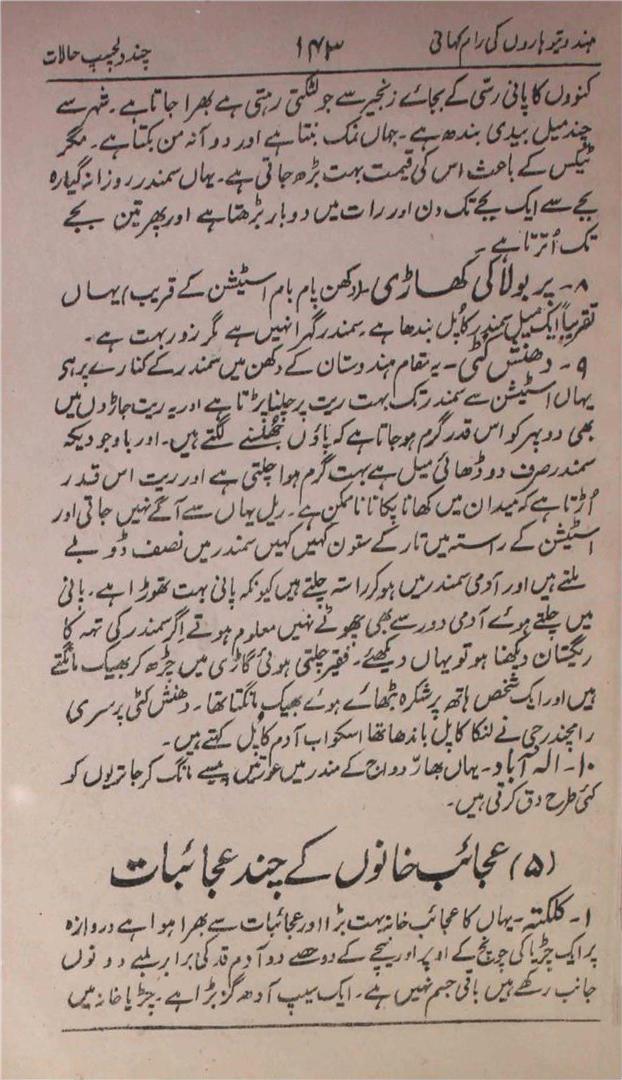 ہندو تیوہاروں کی رام کہانی ۱۴۳ چند دلچسپ حالات
کنووں کا پانی رسّی کے بجائے زنجیر سے جو لٹکتی رہتی ہے بھرا جاتا ہے۔ شہر سے
چند میل بیدی بندھ ہے۔ جہاں نمک بنتا ہے اور دو آنہ من بکتا ہے۔ مگر
ٹیکس کے باعث اس کی قیمت بہت بڑھ جاتی ہے۔ یہاں سمندر روزانہ گیارہ
بجے سے ایک بجے تک دن اور رات میں دو بار بڑھتا ہے اور پھر تین بجے
تک اُترتا ہے۔
۸۔ پربولا کی کھاڑی۔ (دکھن پام بام اسٹیشن کے قریب) یہاں
تقریباً ایک میل سمندر کا پُل بندھا ہے۔ سمندر گہرا نہیں ہے مگر زور بہت ہے۔
۹۔ دھنش کٹی۔ یہ مقام ہندوستان کے دکھن میں سمندر کے کنارے پر ہی
یہاں اسٹیشن سے سمندر تک بہت ریت پر چلنا پڑتا ہے اور یہ ریت جاڑوں میں
بھی دوپہر کو اس قدر گرم ہو جاتا ہے کہ پاؤں جُھلسنے لگتے ہیں۔ اور باوجودیکہ
سمندر صرف دو ڈھائی میل ہے بہت گرم ہوا چلتی ہے اور ریت اس قدر
اُڑتا ہے کہ میدان میں کھانا پکانا ناممکن ہے۔ ریل یہاں سے آگے نہیں جاتی اور
اسٹیشن کے راستہ میں تار کے ستون کہیں کہیں سمندر میں نصف ڈوبے
ملتے ہیں اور آدمی سمندر میں ہو کر راستہ چلتے ہیں کیونکہ پانی بہت تھوڑا ہے۔ پانی
میں چلتے ہوئے آدمی دور سے بھی چھوٹے نہیں معلوم ہوتے اگر سمندر کی تہہ کا
ریگستان دیکھنا ہو تو یہاں دیکھئے۔ فقیر چلتی ہوئی گاڑی میں چڑھ کر بھیک مانگتے
ہیں اور ایک شخص ہاتھ پر شکرہ بٹھائے ہوئے بھیک مانگتا تھا۔ دھنش کٹی پر سری
رامچندر جی نے لنکا کا پل باندھا تھا اسکو اب آدم کا پُل کہتے ہیں۔
۱۰۔ الہ آباد۔ یہاں بھاردواج کے مندر میں عورتیں پیسے مانگ کر جاتریوں کو
کئی طرح دق کرتی ہیں۔
(۵) عجائب خانوں کے چند عجائبات
۱۔ کلکتہ۔ یہاں کا عجائب خانہ بہت بڑا اور عجائبات سے بھرا ہوا ہے دروازہ
پر ایک چڑیا کی چونچ کے اوپر اور نیچے کے دو حصے دو آدم قد کی برابر لمبے دونوں
جانب رکھے ہیں باقی جسم نہیں ہے۔ ایک سیپ آدھ گز بڑا ہے۔ چڑیا خانہ میں